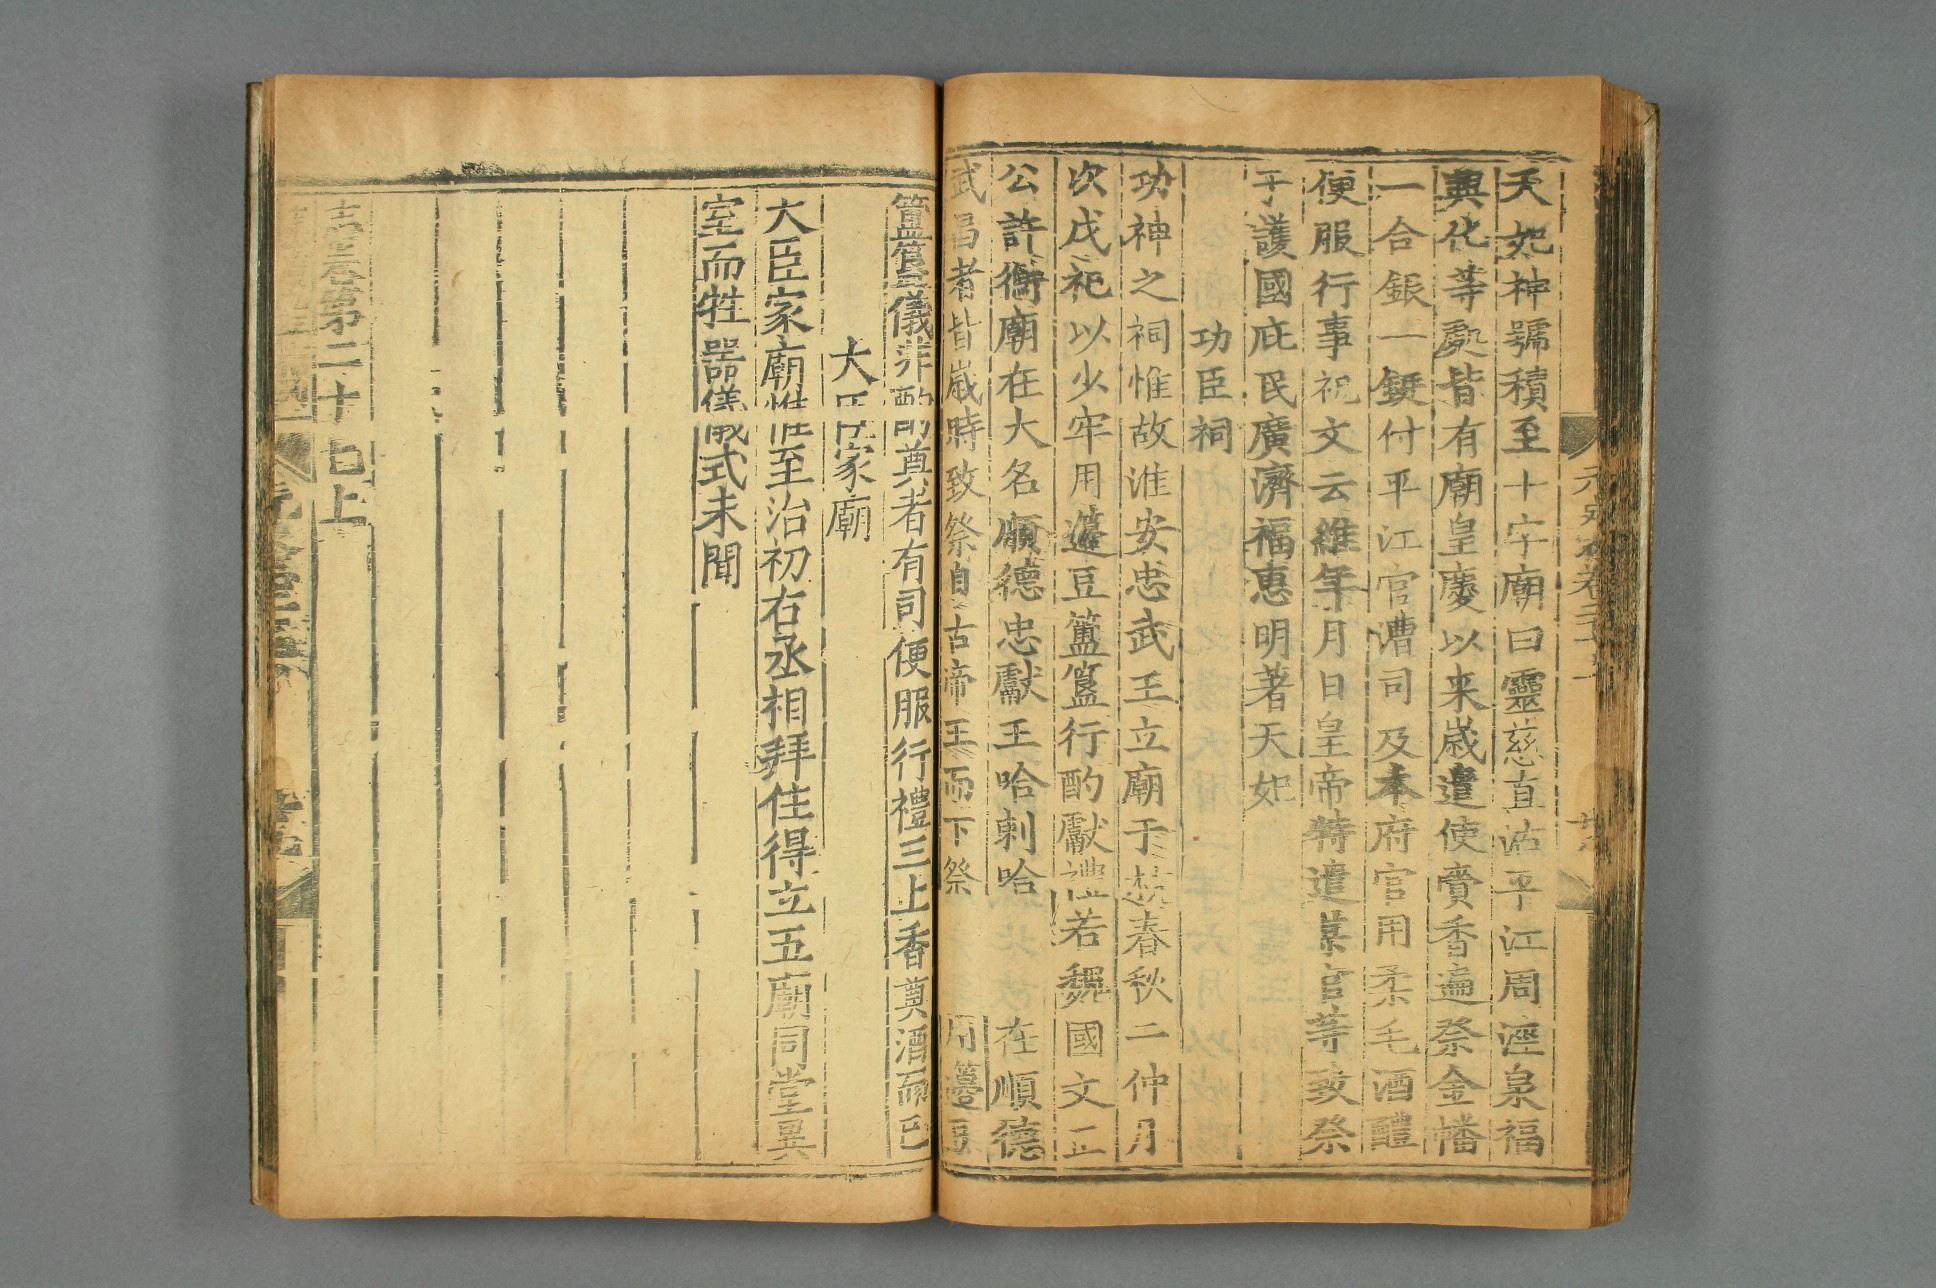 天妃神號積至十字廟曰靈慈直沽平江周涇泉福
興化等處皆有廟皇慶以来歲遣使賫香遍祭金幡
一合銀一鋌付平江官漕司及本府官用柔毛酒醴
便服行事祝文云維年月日皇帝特遣某官等致祭
于護國庇民廣濟福惠明著天妃
功臣祠
功神之祠惟故淮安忠武王立廟于杭春秋二仲月
次戊祀以少牢用籩豆簠簋行酌獻禮若魏國文正
公許衡廟在大名順德忠獻王哈剌哈 在順德
武昌者皆歲時致祭自古帝王而下祭 用籩豆
簠簋儀非酌奠者有司便服行禮三上香奠酒而已
大臣家廟
大臣家廟惟至治初右丞相拜住得立五廟同堂異
室而牲器儀式未聞
志卷第二十七上